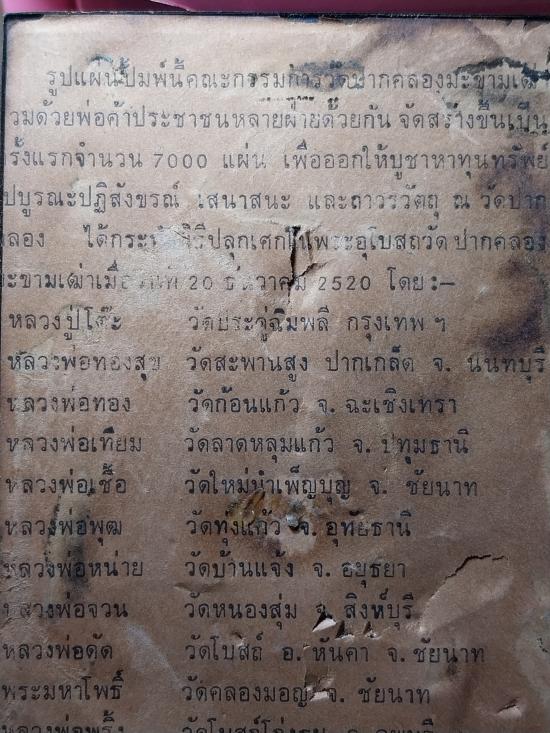 รูปแผ่นปั้มพ์นี้คณะกรรมการวัดปากคลองมะขามเฒ่า
วมด้วยพ่อค้าประชาชนหลายฝ่ายด้วยกัน จัดสร้างขึ้นเป็น
ครั้งแรกจำนวน 7000 แผ่น เพื่อออกให้บูชาหาทุนทรัพย์
ปบูรณะปฏิสังขรณ์ เสนาสนะ และถาวรวัตถุ ณ วัดปาก
คลอง ได้กระทำพิธีปลุกเศกในพระอุโบสถวัดปากคลอง
มะขามเฒ่าเมื่อวันที่ 20 ธันวาคม 2520 โดย :-
หลวงปู่โต๊ะ วัดประดู่ฉิมพลี กรุงเทพ ฯ
หลวงพ่อทองสุข วัดสะพานสูง ปากเกล็ด จ. นนทบุรี
หลวงพ่อทอง วัดก้อนแก้ว จ. ฉะเชิงเทรา
หลวงพ่อเทียม วัดลาดหลุมแก้ว จ. ปทุมธานี
หลวงพ่อเชื้อ วัดใหม่บำเพ็ญบุญ จ. ชัยนาท
หลวงพ่อพุฒ วัดทุ่งแก้ว จ. อุทัยธานี
หลวงพ่อหน่าย วัดบ้านแจ้ง จ. อยุธยา
หลวงพ่อจวน วัดหนองสุ่ม จ. สิงห์บุรี
หลวงพ่อดัด วัดโบสถ์ อ. หันคา จ. ชัยนาท
พระมหาโพธิ์ วัดคลองมอญ จ. ชัยนาท